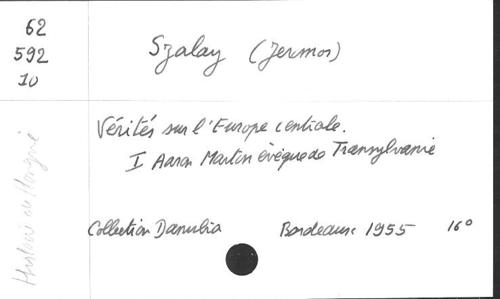 62
592
10
Szalay (Jermos)
Vérités sur l'Europe centrale.
I Aaron Marton évêque de Transylvanie
Collection Danubia Bordeaux 1955 16°
Histoire de Hongrie